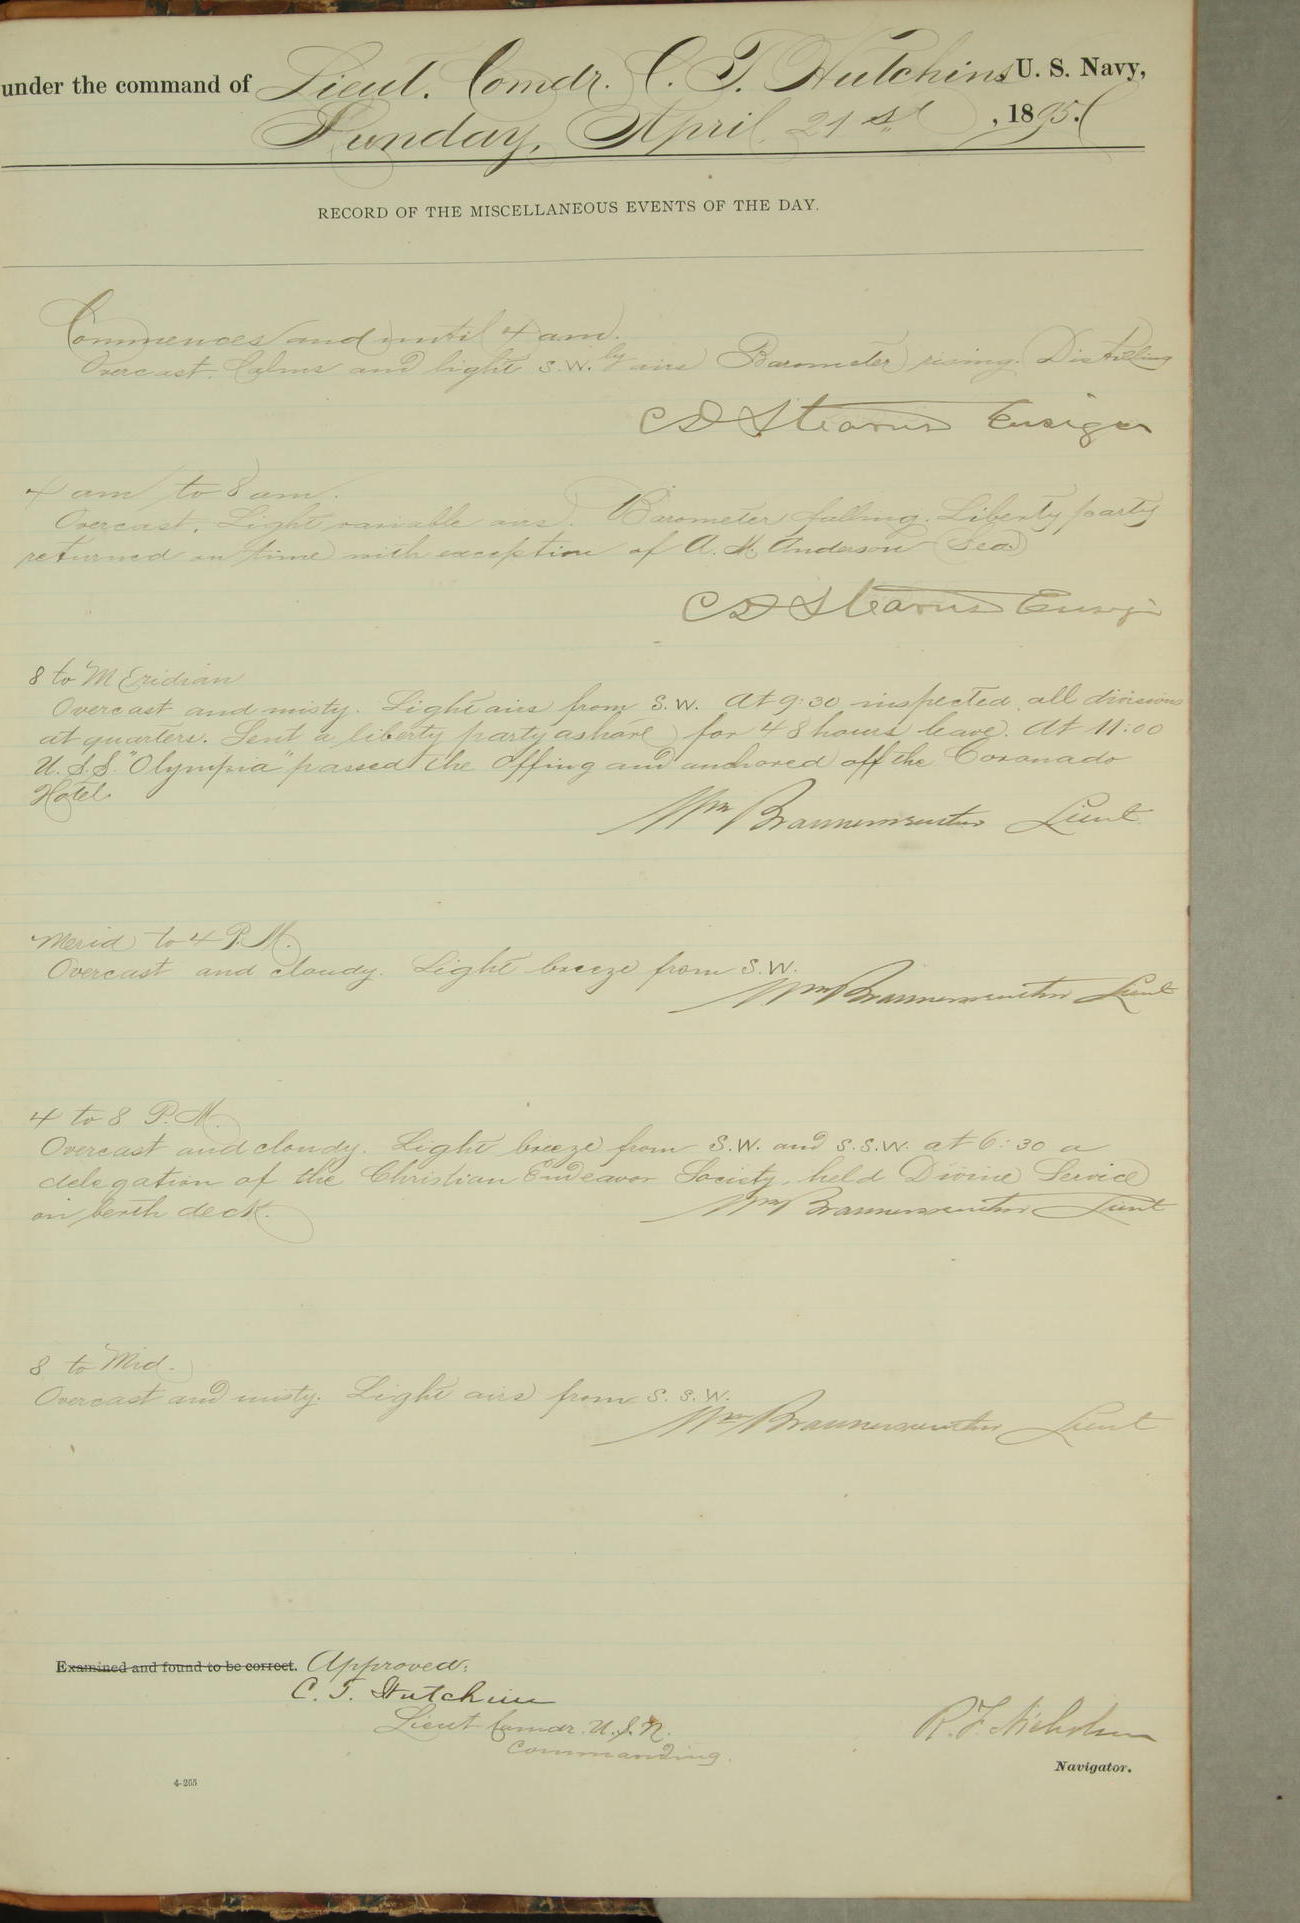 under the command of Lieut. Comdr. C. T. Hutchins U. S. Navy,
Sunday, April 21st, 1895.
RECORD OF THE MISCELLANEOUS EVENTS OF THE DAY.
Commences and until 4 am.
Overcast. Calms and light S.W.ly airs Barometer rising. Distilling
C D Stearns Ensign
4 am to 8 am.
Overcast. Light variable airs. Barometer falling. Liberty party
returned on time with exception of A. M. Anderson (Sea)
C D Stearns Ensign
8 to Meridian
Overcast and misty. Light airs from S.W. At 9:30 inspected all divisions
at quarters. Sent a liberty party ashore for 48 hours leave. At 11:00
U.S.S. "Olympia" passed the offing and anchored off the Coronado
Hotel.
Wm Braunersreuther Lieut.
Merid to 4 P.M.
Overcast and cloudy. Light breeze from S.W.
Wm Braunersreuther Lieut
4 to 8 P.M.
Overcast and cloudy. Light breeze from S.W. and S.S.W. at 6:30 a
delegation of the Christian Endeavor Society held Divine Service
on berth deck.
Wm Braunersreuther Lieut
8 to Mid.
Overcast and misty. Light airs from S.S.W.
Wm Braunersreuther Lieut
Examined and found to be correct. Approved:
C. T. Hutchins
Lieut Comdr. U.S.N.
Commanding.
R. F. Nicholson
Navigator.
4-265